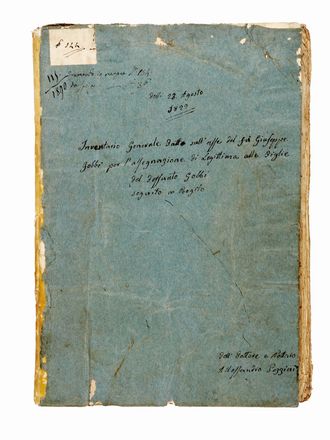 £ 122
111
1890
Dell: 23. Agosto
1822
Inventario Generale Fatto sull'asse del fù Giuseppe
Gobbi per l'assegnazione di Legittima alle Figlie
del Deffunto Gobbi
seguito in Reggio
Dall' Dottore e Nottaio
Alessandro Pezzini